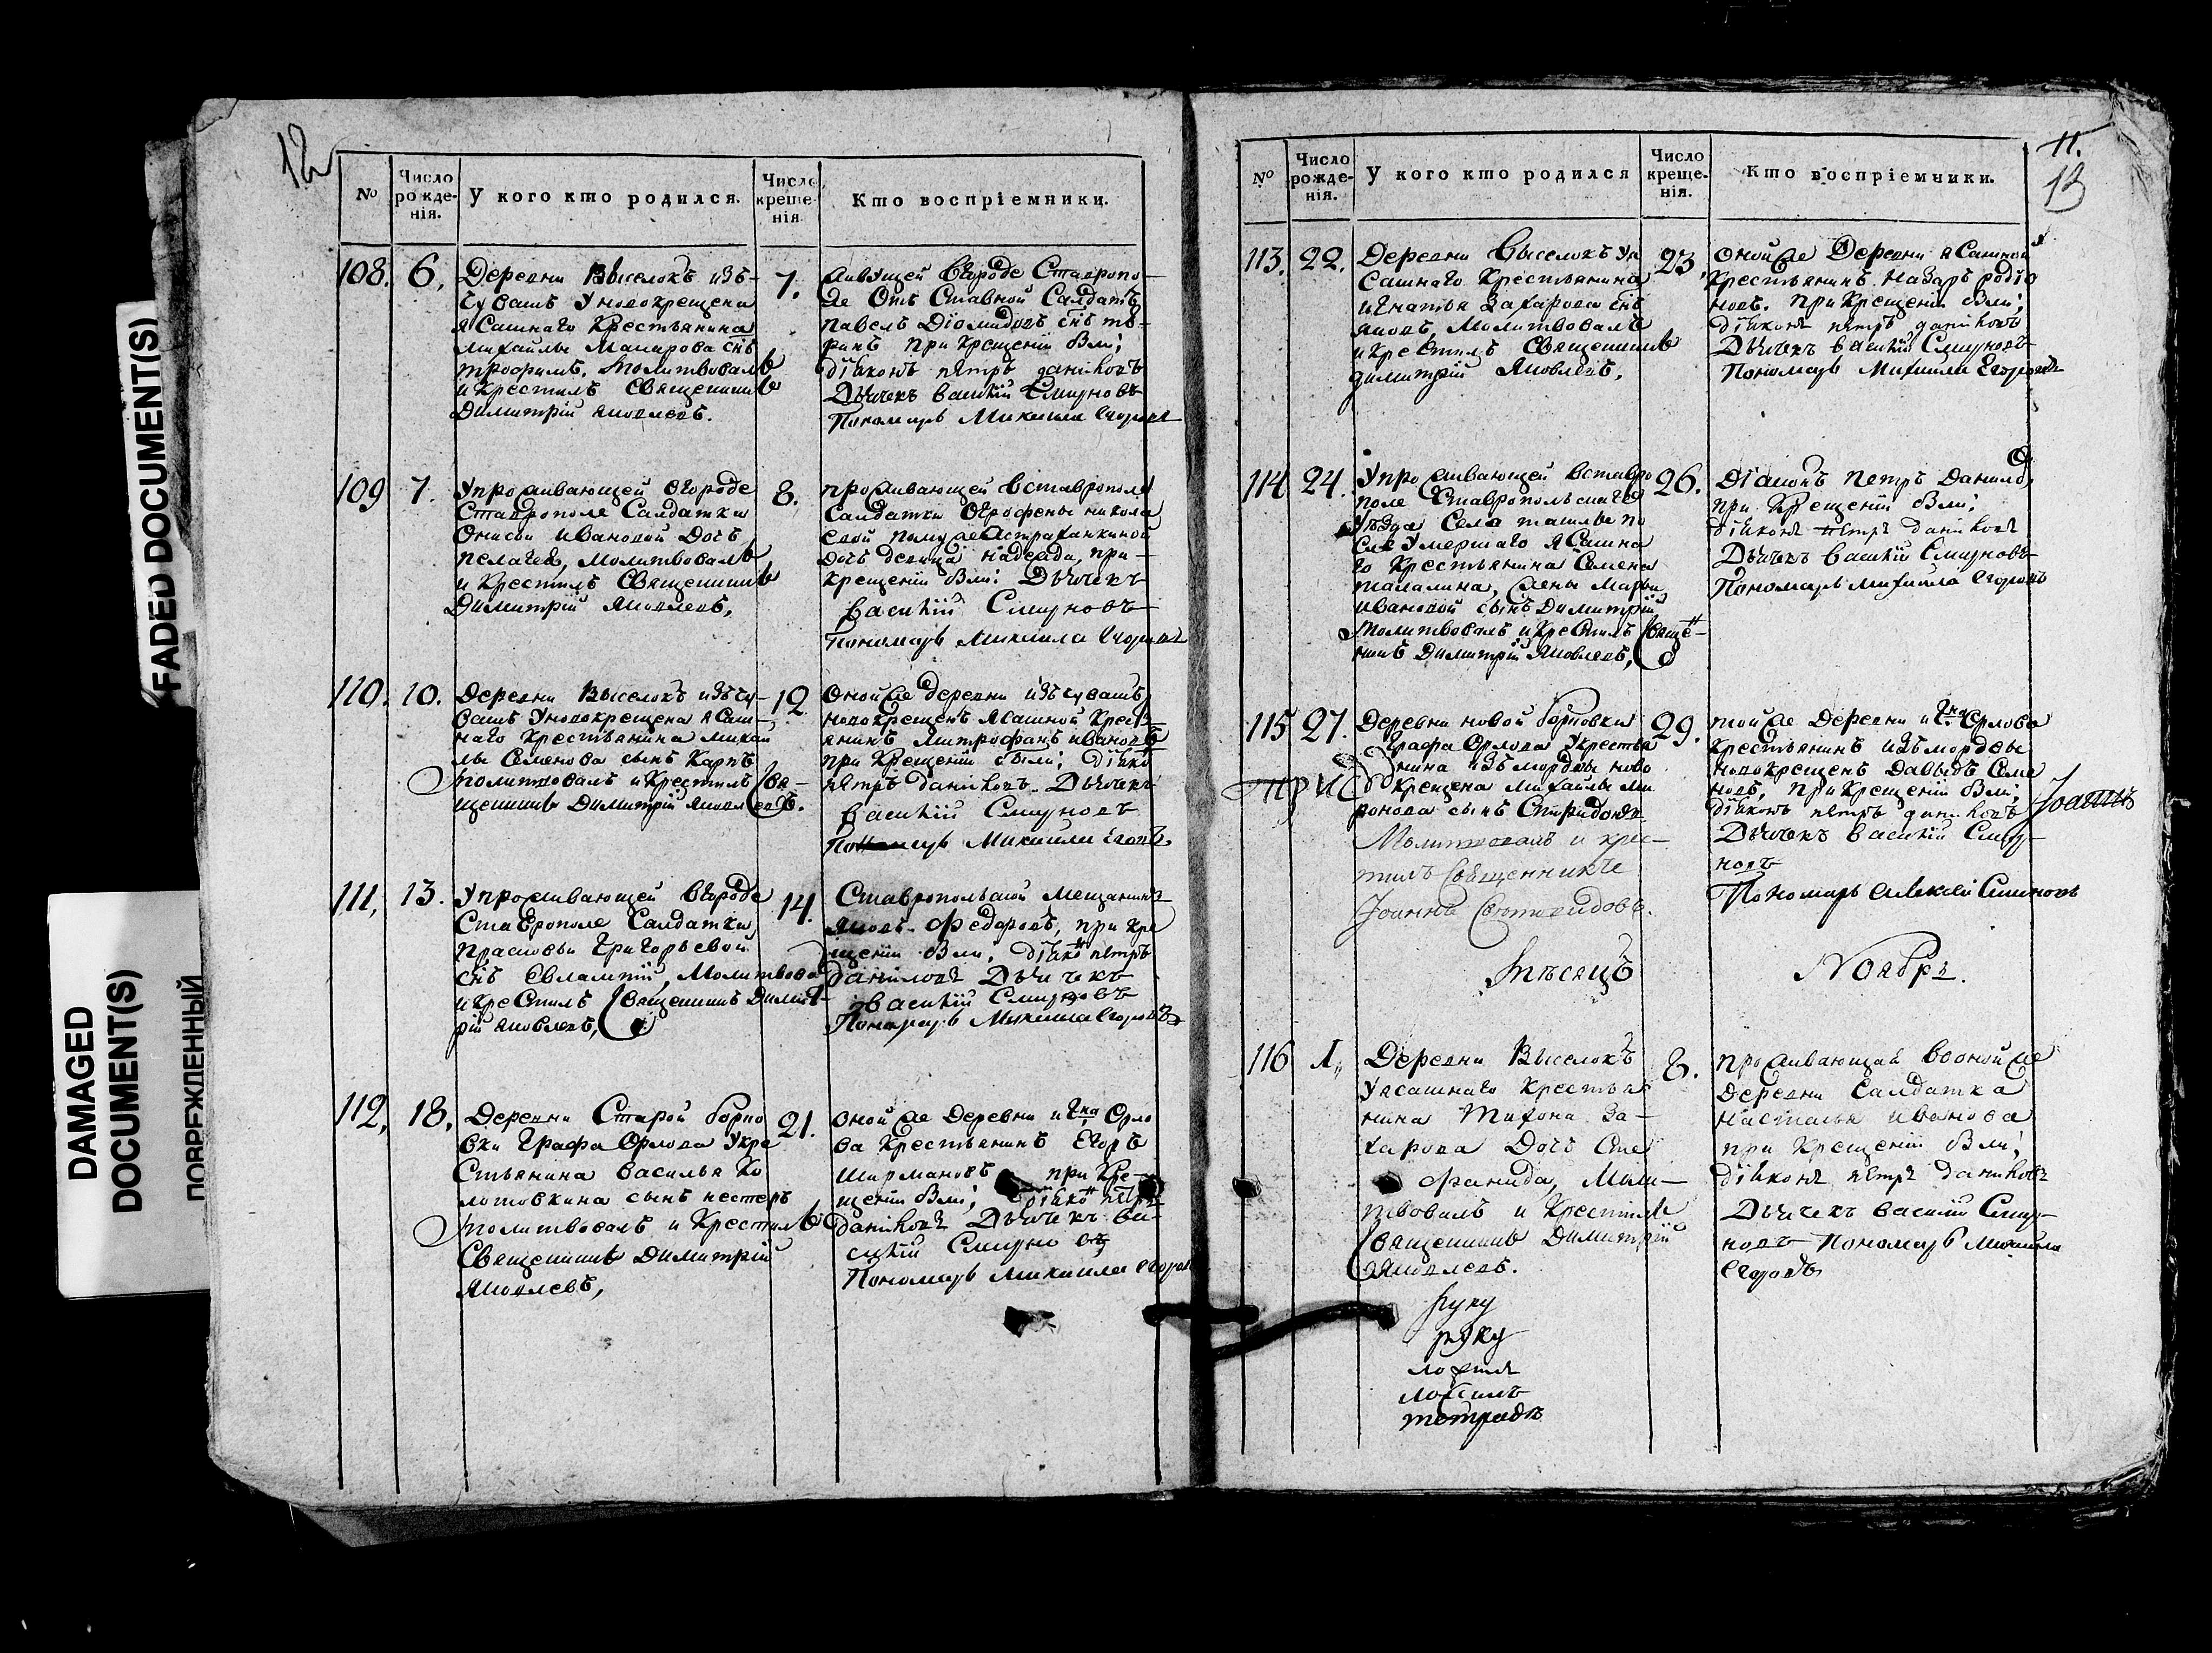 12
№
Число рожденія.
У кого кто родился.
Число крещенія
Кто воспріемники.
108. 6.
Деревни Выселокъ изъ-
чувашъ Уновокрещена
ясашнаго Крестьянина
Михайлы Макарова снъ
трофимъ, Молитвовалъ
и Крестилъ Священникъ
Димитрій Яковлевъ.
7.
Живущей Вгороде Ставропо-
ле Отъ Ставной Салдатъ
павелъ Діомидовъ снъ
при крещеніи были
діяконъ петръ данiловъ
Дьячекъ василій Смирновъ
Пономарь Михаила Егоровъ
109 7.
Упроживающей Вгороде
Ставрополе Салдатки
Онисьи Ивановой Дочь
пелагея, Молитвовалъ
и Крестилъ Священникъ
Димитрій Яковлевъ,
8.
проживающей Вставрополѣ
Салдатки Огрофены никола
евой
дочь девица надежда, при-
крещеніи были: Дьячекъ
василій Смирновъ
Пономарь Михаила Егоровъ
110. 10.
Деревни Выселокъ изъчу-
вашъ Уновокрещена ясаш-
наго Крестьянина михай
лы Семенова сынъ Карпъ
Молитвовалъ и Крестилъ Свя-
щенникъ Димитрій Яковлевъ.
12
Оной же деревни изъ чувашъ
новокрещенъ ясашной Крестъ
янинъ митрофанъ ивановъ
при Крещеніи были: діяко
петръ данiловъ Дьячекъ
василій Смирновъ
Пономарь Михаила Егоровъ
111, 13.
Упроживающей Вгороде
Ставрополе Салдатки
прасковьи Григорьевой
снъ Евлампій, Молитвова
и Крестилъ Священникъ Димит-
рій Яковлевъ,
14.
Ставропольской Мещанинъ
Яковъ Федоровъ, при кре
щеніи были, діяконъ петръ
данiловъ Дьячекъ
василій Смирновъ
Пономарь Михаила Егоровъ
112, 18.
Деревни Старой борко
вки Графа Орлова Укре
стьянина василья Ко
лотовкина сынъ нестеръ
Молитвовалъ и Крестилъ
Священникъ Димитрій
Яковлевъ,
21.
Оной же Деревни и Гна Орло
ва Крестьянинъ Егоръ
Ширмановъ при Кре-
щеніи были, діяконъ петръ
данiловъ Дьячекъ ва-
силій Смирновъ
Пономарь михаила Егоровъ
11.
13
№
Число рожденія.
У кого кто родился
Число крещенія.
Кто воспріемники.
113. 22.
Деревни Выселокъ Уя
сашнаго Крестьянина
игнатья Захарова снъ
Яковъ, Молитвовалъ
и Крестилъ Священникъ
Димитрій Яковлевъ,
23.
Оной же Деревни ясашной
Крестьянинъ Назаръ родіо
новъ. при Крещеніи были:
діяконъ петръ данiловъ
Дьячекъ василій Смирновъ
Пономарь Михаила Егоровъ
114 24.
Упроживающей Вставро
поле Ставропольскаго
Уѣзда Села ташлы по
сле Умершаго ясашна
го Крестьянина Семена
талалина, жены Марьи
ивановой сынъ Димитрій
Молитвовалъ и Крестилъ Свяще-
никъ Димитрій Яковлевъ,
26.
Діаконъ Петръ Данило
при Крещеніи были:
діяконъ петръ данiловъ
Дьячекъ василій Смирновъ
Пономарь михаила Егоровъ
115 27.
Деревни новой борковки
Графа Орлова Укрестья
нина изъ мордвы ново
крещена михайлы ми
ронова сынъ Спиридонъ
Молитвовалъ и крес-
тилъ Священникъ
Іоаннъ
29.
той же Деревни и Гна Орлова
Крестьянинъ изъ мордвы
новокрещенъ Давыдъ Семе
новъ, при Крещеніи были;
діяконъ петръ данiловъ
Дьячекъ василій Смир-
новъ
Пономарь Алексѣй Смирновъ
Іоаннъ
Мѣсяцъ Ноябрь.
116 1,,
Деревни Выселокъ
Уясашнаго Крестья
нина Тихона За-
харова Дочь Сте
фанида, Моли-
твовалъ и Крестилъ
Священникъ Димитрій
Яковлевъ.
8.
проживающая воонойже
Деревни Салдатка
настасья иванова
при Крещеніи были;
діяконъ петръ данiловъ
Дьячекъ василій Смир-
новъ Пономарь михаила
Егоровъ
руку
руку
тетрадь
FADED DOCUMENT(S)
DAMAGED
DOCUMENT(S)
ПОВРЕЖДЕННЫЙ